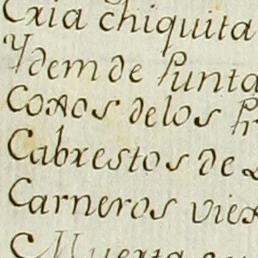 Cria chiquita
Ydem de Punta
Coxos delos Pr
Cabrestos de
Carneros viex
Muerta